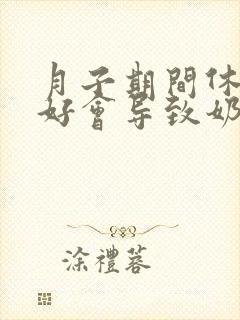 月子期間休
好會导致奶
涂禮蓉